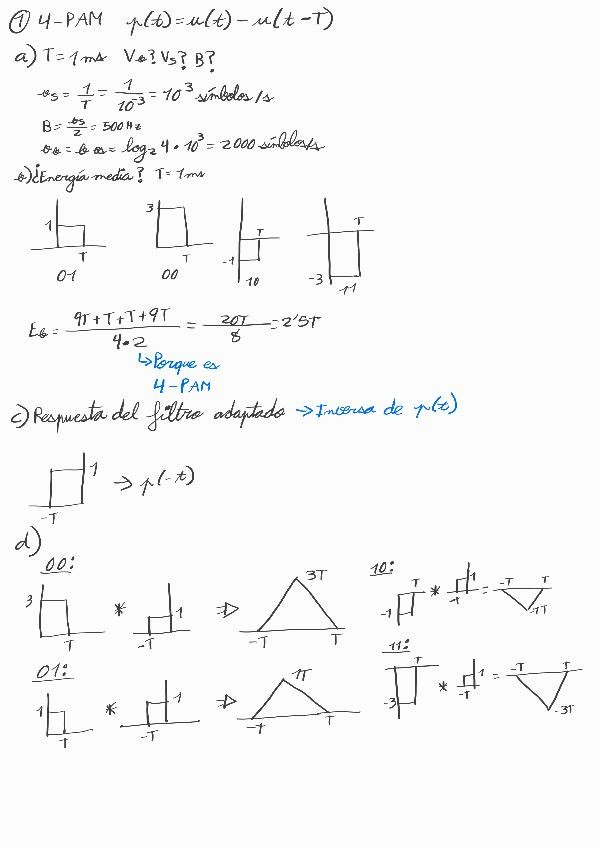 ① 4-PAM p(t) = u(t) - u(t-T)
a) T = 1ms Vb? Vs? B?
vs = 1/T = 1/10^-3 = 10^3 símbolos/s
B = vs/2 = 500Hz
vb = b vs = log2 4 • 10^3 = 2000 símbolos/s
b) ¿Energía media? T = 1ms
1 T 3 T T -1 T -3
01 00 10 11
Eb = 9T+T+T+9T / 4•2 = 20T / 8 = 2'5T
↳ Porque es
4-PAM
c) Respuesta del filtro adaptado → Inversa de p(t)
1 -T → p(-t)
d)
00:
3 T * -T 1 ⇒ 3T -T T
10:
-1 T * -T 1 = -T T -1T
01:
1 T * -T 1 ⇒ 1T -T T
11:
-3 T * -T 1 = -T T -3T